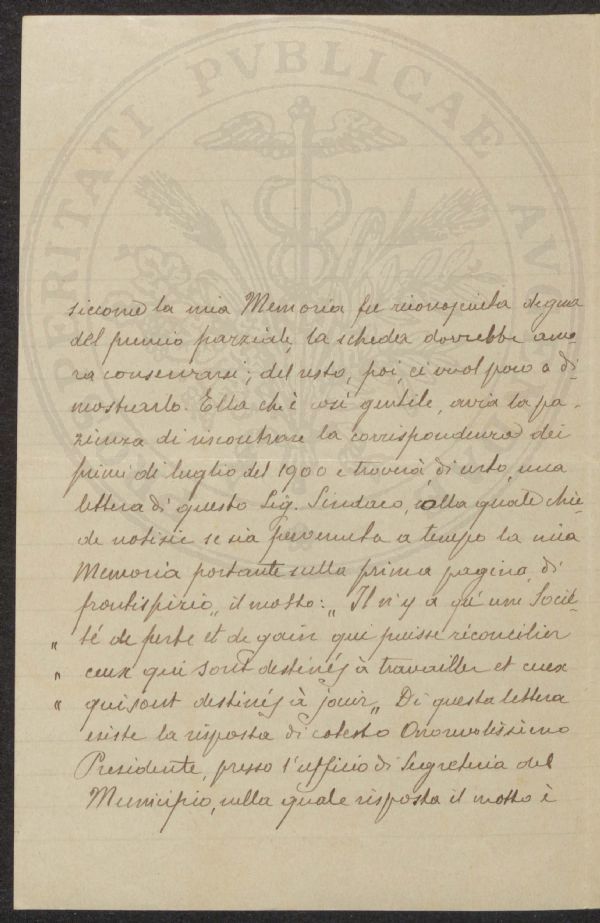 PROSPERITATI PVBLICAE AVG
siccome la mia Memoria fu riconosciuta degna
del premio parziale, la scheda dovrebbe anco-
ra conservarsi; del resto, poi, ci vuol poco a di-
mostrarlo. Ella ch'è così gentile, avrà la pa-
zienza di riscontrare la corrispondenza dei
primi di luglio del 1900 e troverà, di certo, una
lettera di questo Sig. Sindaco, colla quale chie-
de notizie se sia pervenuta a tempo la mia
Memoria portante sulla prima pagina, di
frontispizio, il motto: „ Il n'y a qu'une Socié-
„ té de perte et de gain qui puisse réconcilier
„ ceux qui sont destinés à travailler et ceux
„ qui sont destinés à jouir„ Di questa lettera
esiste la risposta di cotesto Onorevolissimo
Presidente, presso l'ufficio di Segreteria del
Municipio, nella quale risposta il motto è